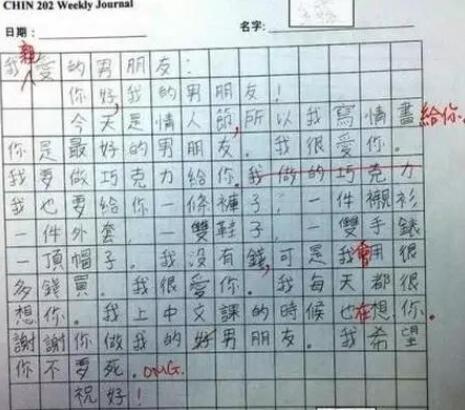 CHIN 202 Weekly Journal
日期： 名字：
我親愛的男朋友：
你好，我的男朋友！
今天是情人節，所以我寫情書給你。
你是最好的男朋友。我很愛你。
我要做巧克力給你。我做的巧克力
我也要給你一條褲子，一件襯衫
一件外套，一雙鞋子，一雙手錶
一頂帽子。我没有錢，可是我會用很
多錢買。我很愛你。我每天都很
想你。我上中文課的時候也在想你。
謝謝你做我的好男朋友。我希望
你不要死。OMG.
祝好！